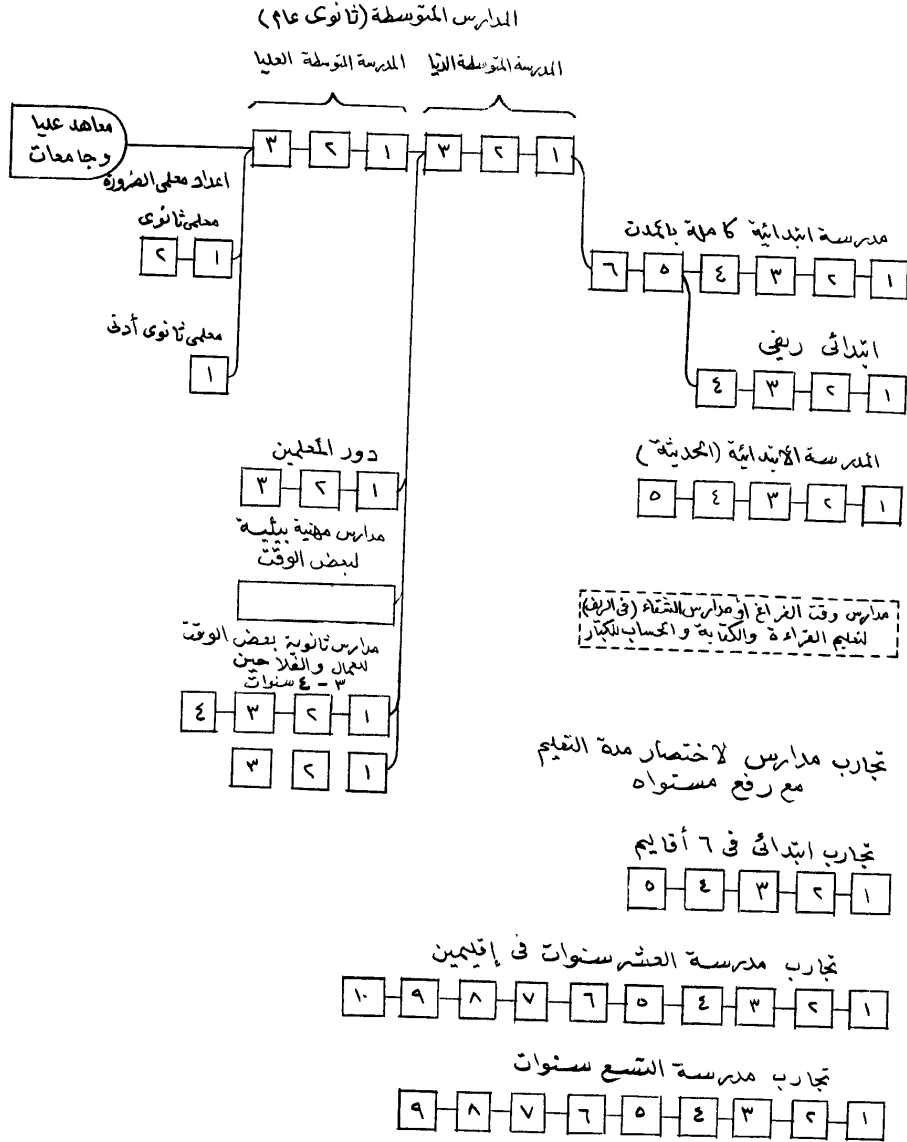 المدارس المتوسطة (ثانوى عام)
المدرسة المتوسطة الدنيا
المدرسة المتوسطة العليا
١ ٢ ٣ ١ ٢ ٣
معاهد عليا
وجامعات
اعداد معلمى الضرورة
معلمى ثانوى
١ ٢
معلمى ثانوى أدنى
١
مدرسة ابتدائية كاملة بالمدن
١ ٢ ٣ ٤ ٥ ٦
ابتدائى ريفى
١ ٢ ٣ ٤
المدرسة الابتدائية (الحديثة)
١ ٢ ٣ ٤ ٥
دور المعلمين
١ ٢ ٣
مدارس مهنية بيئية
لبعض الوقت
مدارس ثانوية بعض الوقت
للعمال والفلاحين
٣ - ٤ سنوات
١ ٢ ٣ ٤
١ ٢ ٣
مدارس وقت الفراغ أو مدارس الشتاء (فى الريف)
لتعليم القراءة والكتابة والحساب للكبار
تجارب مدارس لاختصار مدة التعليم
مع رفع مستواه
تجارب ابتدائى فى ٦ أقاليم
١ ٢ ٣ ٤ ٥
تجارب مدرسة العشر سنوات فى إقليمين
١ ٢ ٣ ٤ ٥ ٦ ٧ ٨ ٩ ١٠
تجارب مدرسة التسع سنوات
١ ٢ ٣ ٤ ٥ ٦ ٧ ٨ ٩